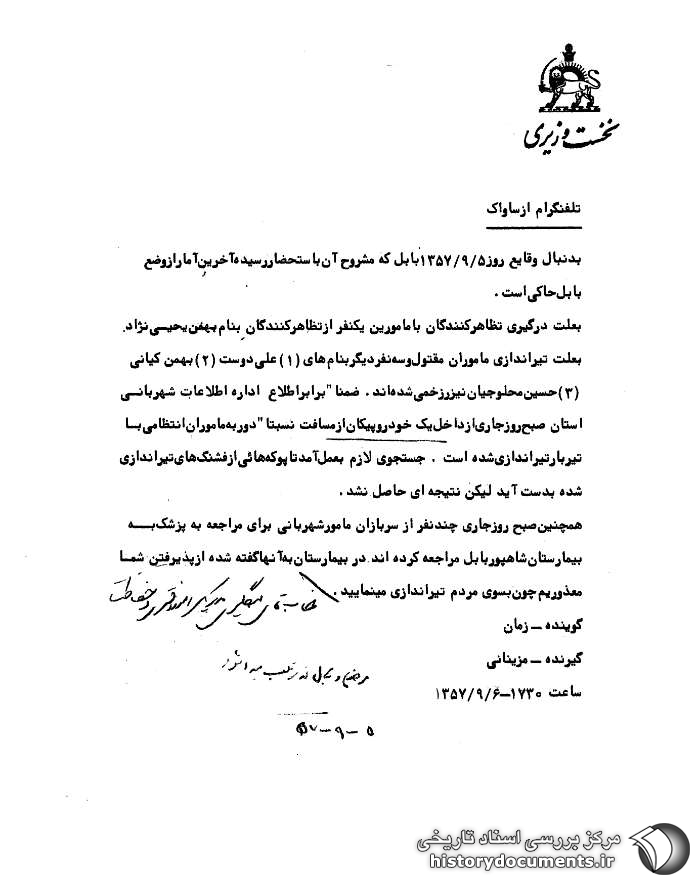 نخست وزیری
تلفنگرام ازساواک
بدنبال وقایع روز ۱۳۵۷/۹/۵ بابل که مشروح آن باستحضاررسیده آخرین آمارازوضع
بابل حاکی است .
بعلت درگیری تظاهرکنندگان بامامورین یکنفر ازتظاهرکنندگان بنام بهمن یحیی نژاد
بعلت تیراندازی ماموران مقتول وسه نفردیگربنام های (۱) علی دوست (۲) بهمن کیانی
(۳) حسین محلوجیان نیززخمی شده اند . ضمنا" برابراطلاع اداره اطلاعات شهربانی
استان صبح روزجاری ازداخل یک خودروپیکان ازمسافت نسبتا" دوربه ماموران انتظامی با
تیربارتیراندازی شده است . جستجوی لازم بعمل آمدتاپوکه هائی ازفشنگ های تیراندازی
شده بدست آید لیکن نتیجه ای حاصل نشد .
همچنین صبح روزجاری چندنفر از سربازان مامورشهربانی برای مراجعه به پزشک بــه
بیمارستان شاهپوربابل مراجعه کرده اند. در بیمارستان به آنهاگفته شده ازپذیرفتن شمـا
معذوریم چون بسوی مردم تیراندازی مینمایید .
گوینده ــ زمان
گیرنده ــ مزینانی
ساعت ۱۷۳۰ــ۱۳۵۷/۹/۶
۵ــ۹ــ۵۷
مرکز بررسی اسناد تاریخی
historydocuments.ir